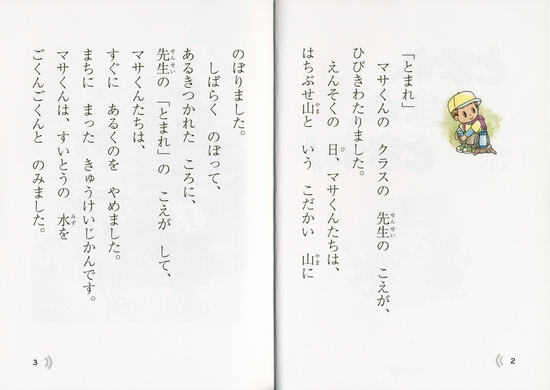 「とまれ」
マサくんの クラスの 先生の こえが、
ひびきわたりました。
えんそくの 日、マサくんたちは、
はちぶせ山と いう こだかい 山に
2
のぼりました。
しばらく のぼって、
あるきつかれた ころに、
先生の 「とまれ」の こえが して、
マサくんたちは、
すぐに あるくのを やめました。
まちに まった きゅうけいじかんです。
マサくんは、すいとうの 水を
ごくんごくんと のみました。
3